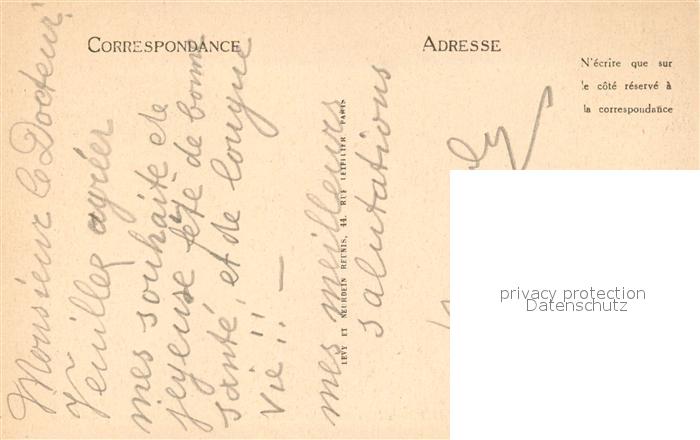 CORRESPONDANCE
ADRESSE
N'écrire que sur
le côté réservé à
la correspondance
Monsieur le Docteur!
Veuillez agréer
mes souhaite de
joyeuse fête de bonne
santé, et de longue
vie!! —
mes meilleurs
salutations
LEVY ET NEURDEIN REUNIS, 44, RUE LETELLIER PARIS
privacy protection
Datenschutz